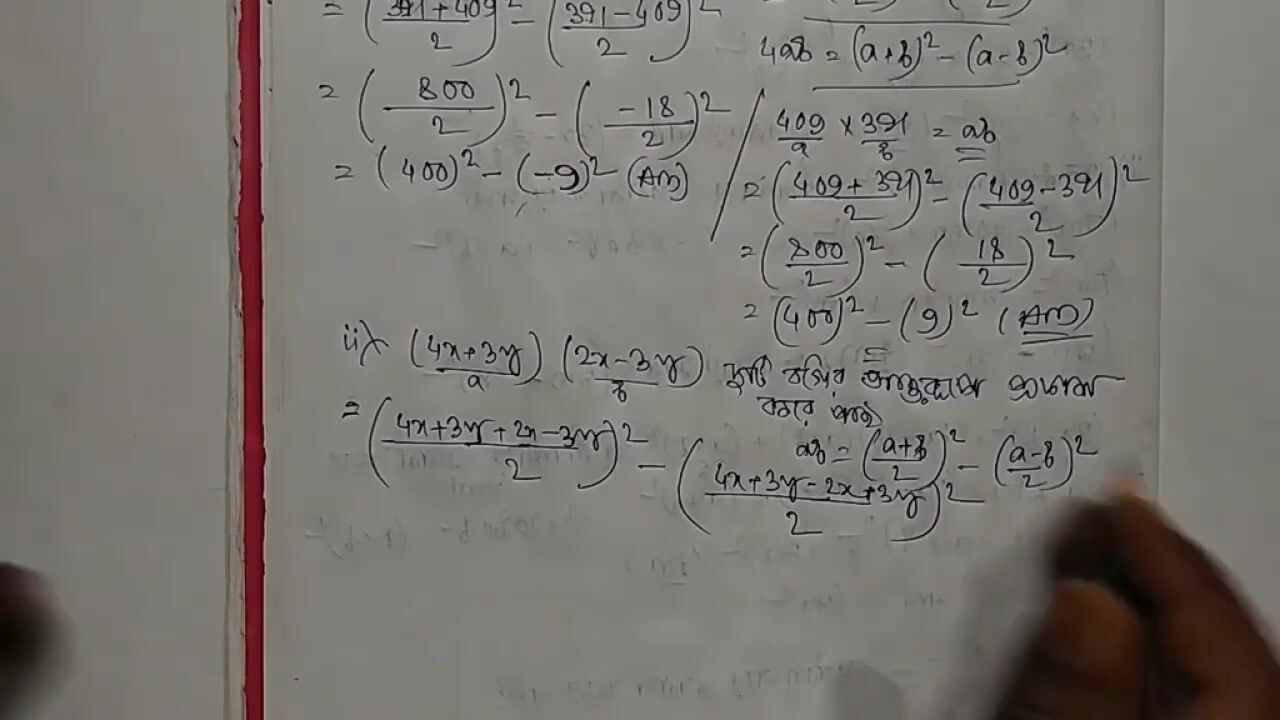 = (391+409/2)² - (391-409/2)²
= (800/2)² - (-18/2)²
= (400)² - (-9)² (Ans)
4ab = (a+b)² - (a-b)²
409/a × 391/b = ab
= (409+391/2)² - (409-391/2)²
= (800/2)² - (18/2)²
= (400)² - (9)² (Ans)
ii) (4x+3y)/a (2x-3y)/b দুটি বর্গের অন্তররূপে প্রকাশ
করে পাই
ab = (a+b/2)² - (a-b/2)²
= (4x+3y+2x-3y/2)² - (4x+3y-2x+3y/2)²